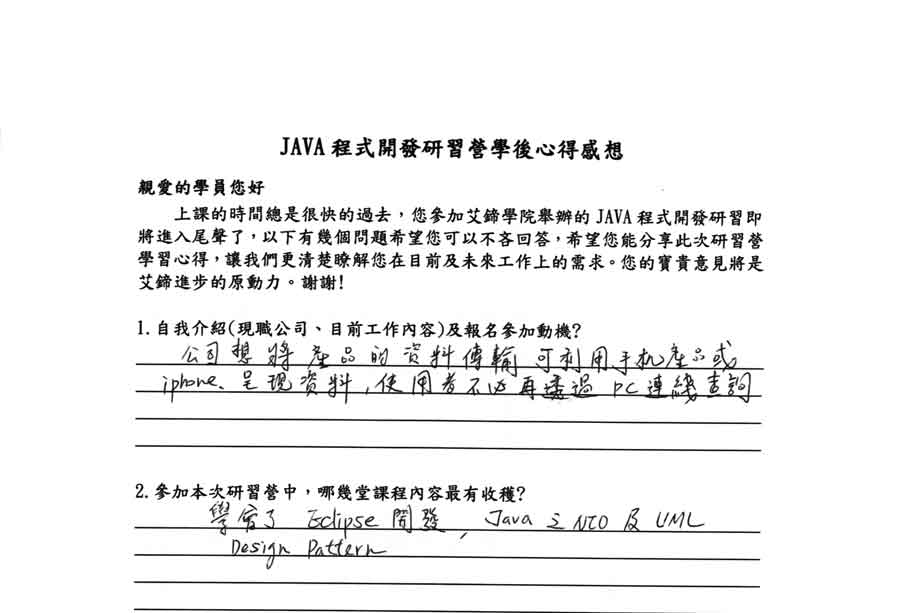 JAVA 程式開發研習營學後心得感想
親愛的學員您好
上課的時間總是很快的過去，您參加艾鍗學院舉辦的 JAVA 程式開發研習即
將進入尾聲了，以下有幾個問題希望您可以不吝回答，希望您能分享此次研習營
學習心得，讓我們更清楚瞭解您在目前及未來工作上的需求。您的寶貴意見將是
艾鍗進步的原動力。謝謝!
1.自我介紹(現職公司、目前工作內容)及報名參加動機?
公司想將產品的資料傳輸可利用手机產品或
iphone、呈現資料，使用者不必再透過 PC連綫查詢
2.參加本次研習營中，哪幾堂課程內容最有收穫?
學會了 Eclipse 開發，Java 之 NIO 及 UML
Design Pattern